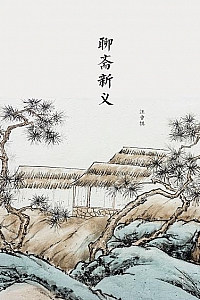 聊斋新义
汪曾祺